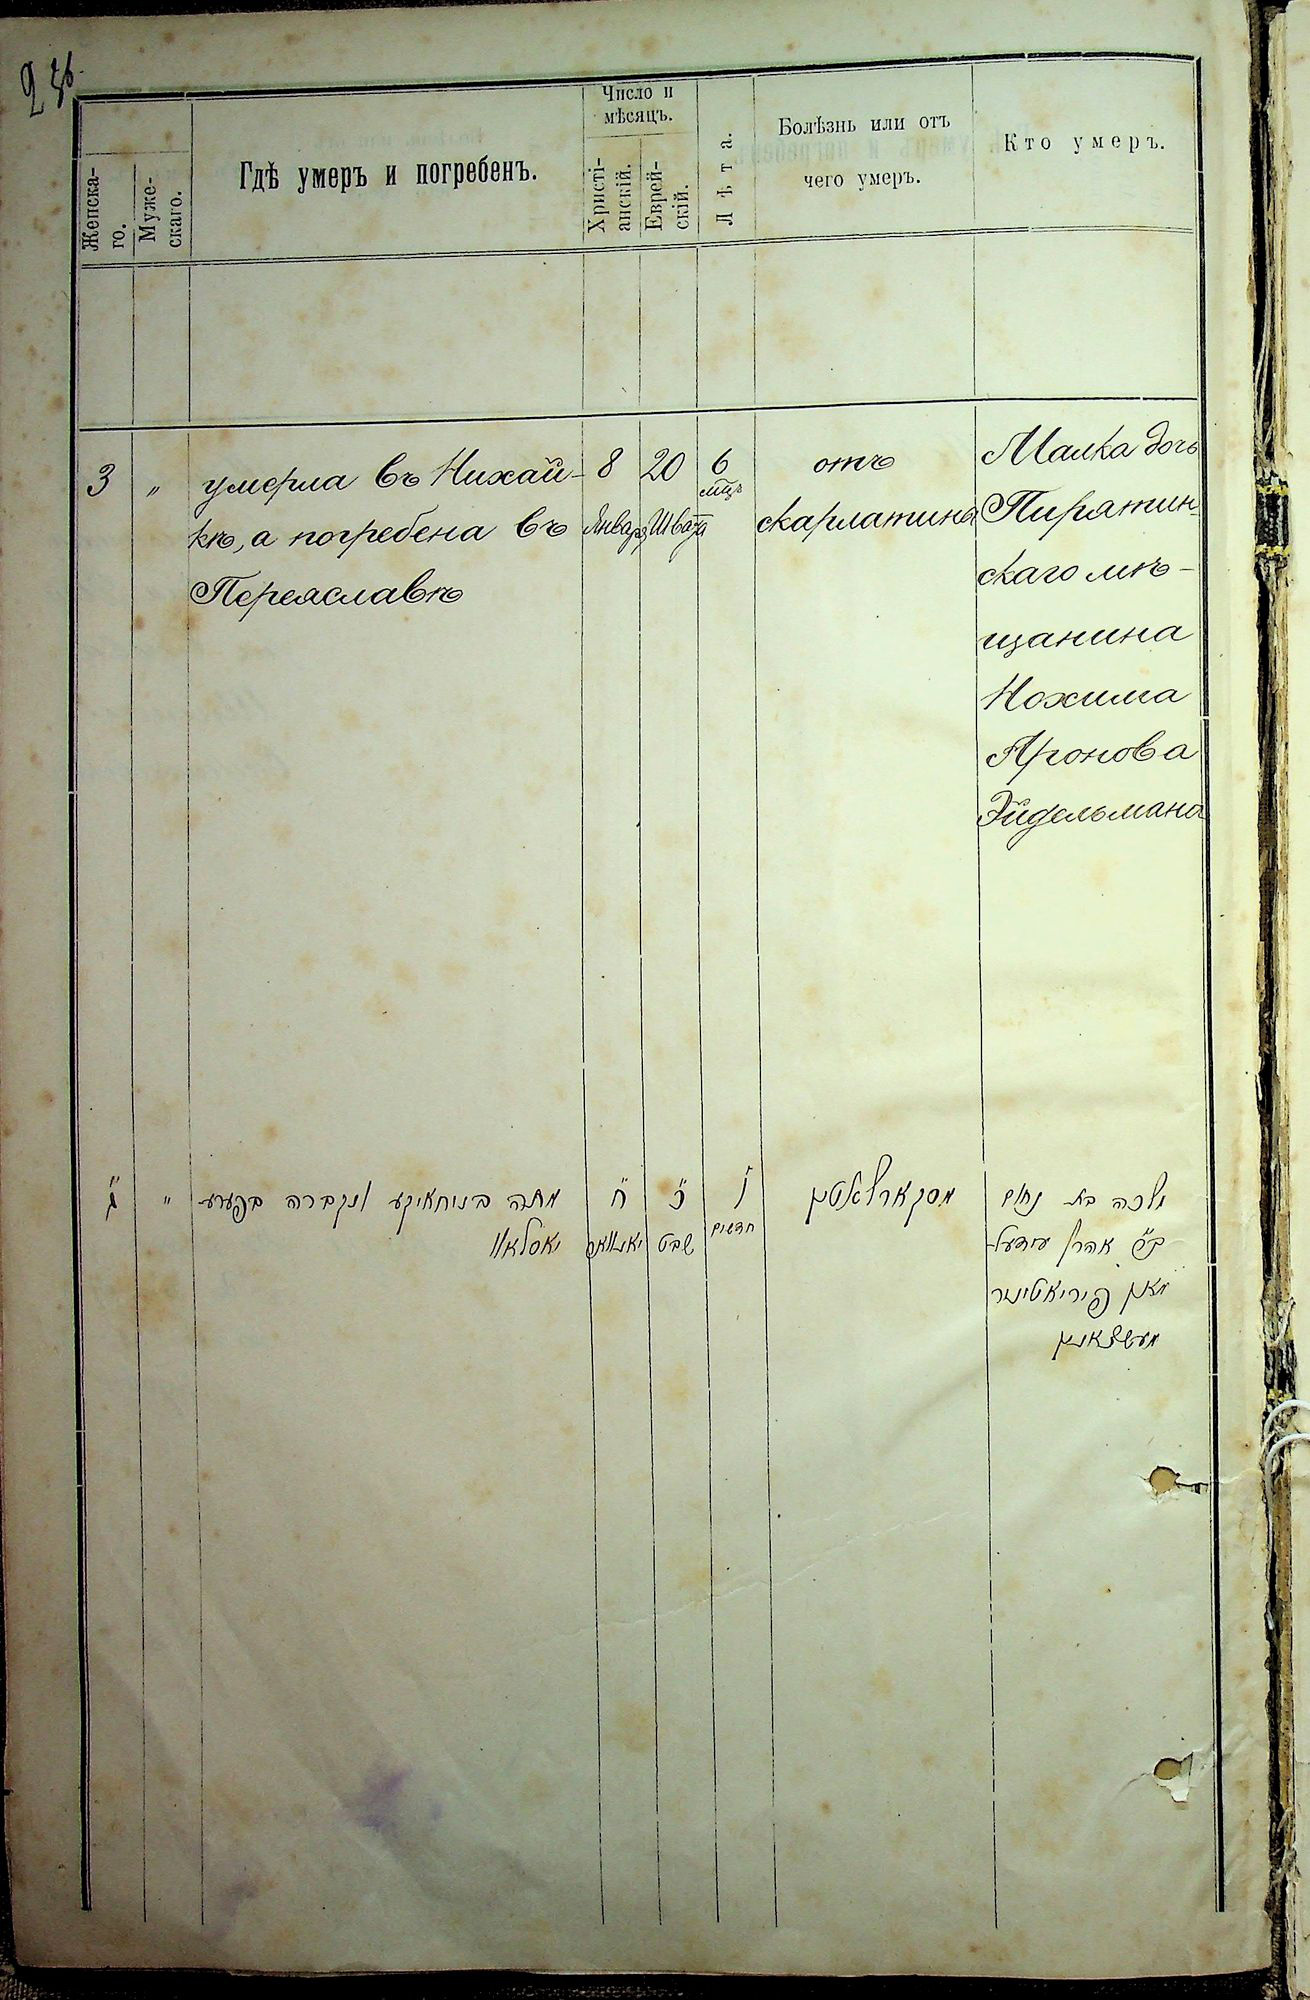 Женска-
го.
Муже-
скаго.
Гдѣ умеръ и погребенъ.
Число и
мѣсяцъ.
Христі-
анскій.
Еврей-
скій.
Лѣта.
Болѣзнь или отъ
чего умеръ.
Кто умеръ.
3
„
умерла въ Нихай-
кѣ, а погребена въ
Переяславѣ
8
Января
20
Швата
6
мѣц.
отъ
скарлатины
Малка дочь
Пирятин-
скаго мѣ-
щанина
Нохима
Аронова
Эйдельмана
ג
״
מתה בניחאיקע ונקברה בפערע
יאסלאוו
ח
יאנוואר
כ
שבט
ו
חדשים
מסקארלאטין
מלכה בת נחום
ב״ר אהרן אידעל
מאן פיריאטינער
מעשצאנין